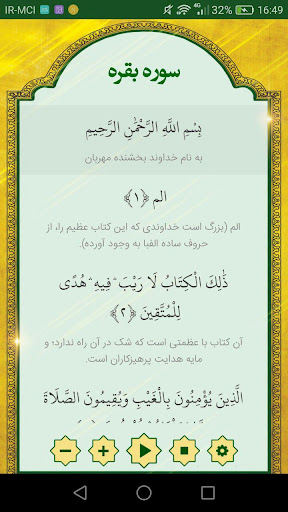 IR-MCI 4G 32% 16:49
سوره بقره
بِسْمِ اللَّهِ الرَّحْمَٰنِ الرَّحِيمِ
به نام خداوند بخشنده مهربان
الم ﴿١﴾
الم (بزرگ است خداوندی که این کتاب عظیم را، از
حروف ساده الفبا به وجود آورده).
ذَٰلِكَ الْكِتَابُ لَا رَيْبَ ۛ فِيهِ ۛ هُدًى
لِلْمُتَّقِينَ ﴿٢﴾
آن کتاب با عظمتی است که شک در آن راه ندارد؛ و
مایه هدایت پرهیزکاران است.
الَّذِينَ يُؤْمِنُونَ بِالْغَيْبِ وَيُقِيمُونَ الصَّلَاةَ